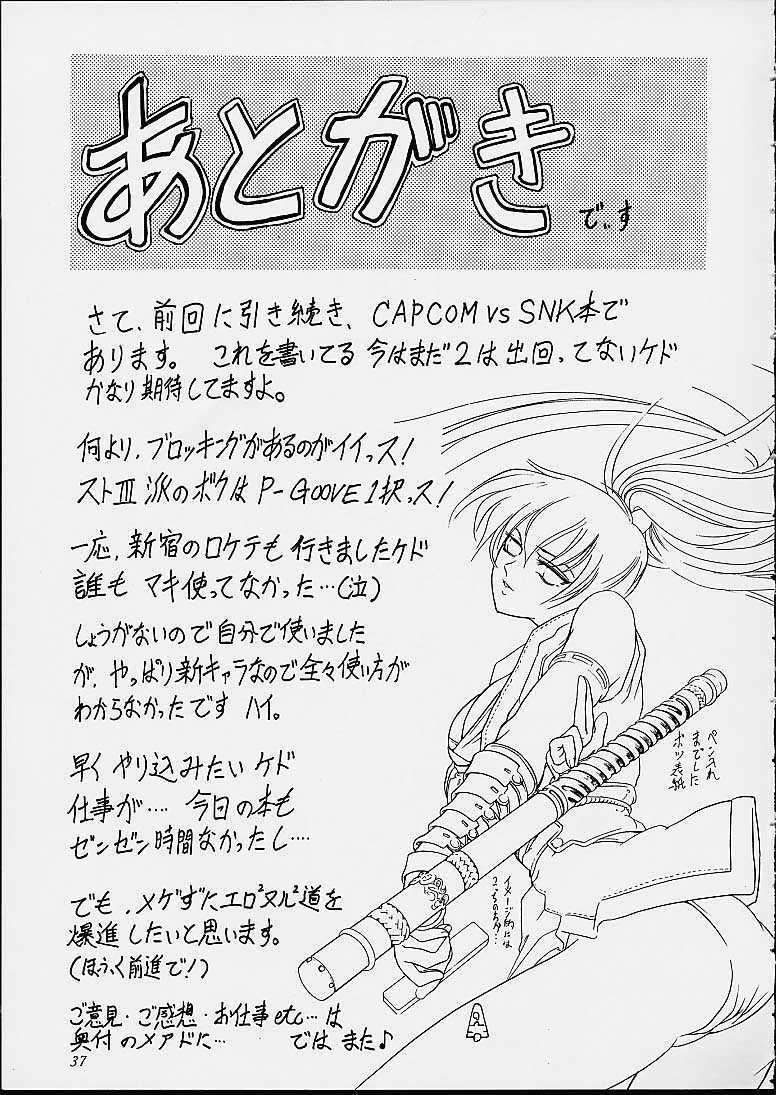 あとがき
でぃす
さて、前回に引き続き、CAPCOM vs SNK本で
あります。 これを書いてる 今はまだ2は出回ってないケド
かなり期待してますよ。
何より、ブロッキングがあるのがイイっス!
ストⅢ派のボクは P-GOOVE 1択っス!
一応、新宿のロケテも行きましたケド
誰も マキ使ってなかった…(泣)
しょうがないので自分で使いました
が、やっぱり新キャラなので全々使い方が
わからなかったです ハイ。
早く やり込みたい ケド
仕事が…. 今日の本も
ゼンゼン時間なかったし….
でも、メゲずにエロ²ヌル²道を
爆進したいと思います。
(ほふく前進で!)
ご意見・ご感想・お仕事etc…は
奥付のメアドに… では また♪
ペン入れ
までした
ボツ表紙
イメージ的には
37